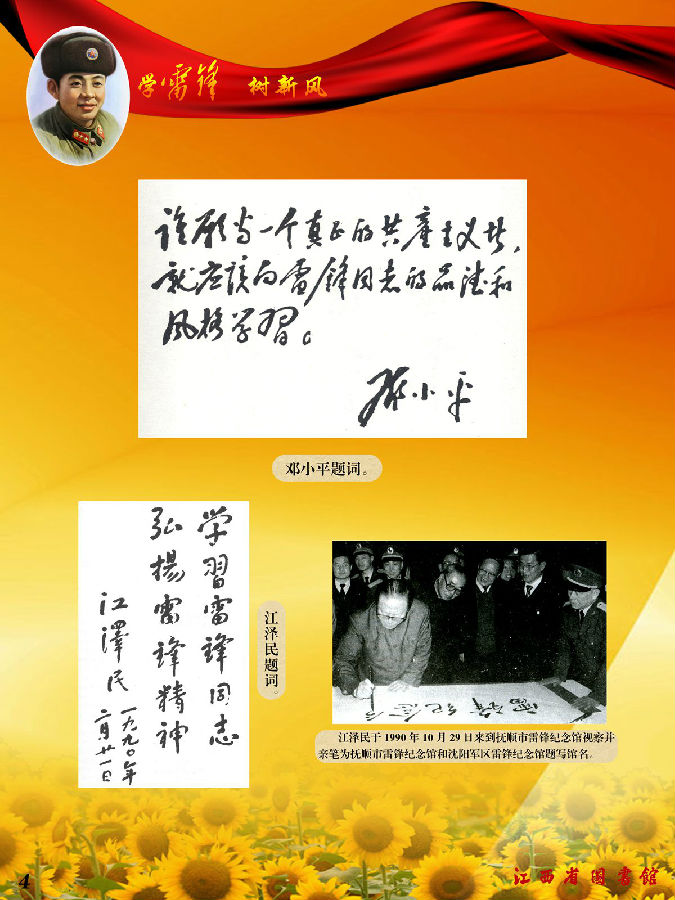 学雷锋 树新风
谁愿当一个真正的共產主义者，
就应该向雷锋同志的品德和
风格学習。
邓小平
邓小平题词。
学習雷锋同志
弘揚雷锋精神
江澤民
一九九〇年
二月廿一日
江泽民题词。
雷锋纪念
江泽民于1990年10月29日来到抚顺市雷锋纪念馆视察并
亲笔为抚顺市雷锋纪念馆和沈阳军区雷锋纪念馆题写馆名。
4
江西省图書館